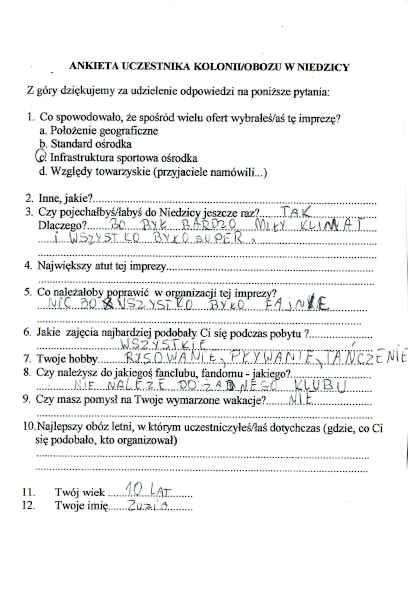 ANKIETA UCZESTNIKA KOLONII/OBOZU W NIEDZICY
Z góry dziękujemy za udzielenie odpowiedzi na poniższe pytania:
1. Co spowodowało, że spośród wielu ofert wybrałeś/aś tę imprezę?
a. Położenie geograficzne
b. Standard ośrodka
c. Infrastruktura sportowa ośrodka
d. Względy towarzyskie (przyjaciele namówili...)
2. Inne, jakie?
3. Czy pojechałbyś/łabyś do Niedzicy jeszcze raz? TAK
Dlaczego? BO BYŁ BARDZO MIŁY KLIMAT
I WSZYSTKO BYŁO SUPER.
4. Największy atut tej imprezy
5. Co należałoby poprawić w organizacji tej imprezy?
NIC BO WSZYSTKO BYŁO FAJNE
6. Jakie zajęcia najbardziej podobały Ci się podczas pobytu ?
WSZYSTKIE
7. Twoje hobby RYSOWANIE, PŁYWANIE, TAŃCZENIE
8. Czy należysz do jakiegoś fanclubu, fandomu - jakiego?
NIE NALEŻE DO ŻADNEGO KLUBU
9. Czy masz pomysł na Twoje wymarzone wakacje? NIE
10. Najlepszy obóz letni, w którym uczestniczyłeś/łaś dotychczas (gdzie, co Ci
się podobało, kto organizował)
11. Twój wiek 10 LAT
12. Twoje imię Zuzia